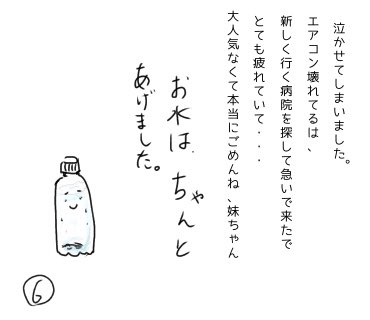 泣かせてしまいました。
エアコン壊れてるは、
新しく行く病院を探して急いで来たで
とても疲れていて・・・
大人気なくて本当にごめんね、妹ちゃん
お水は、ちゃんと
あげました。
6